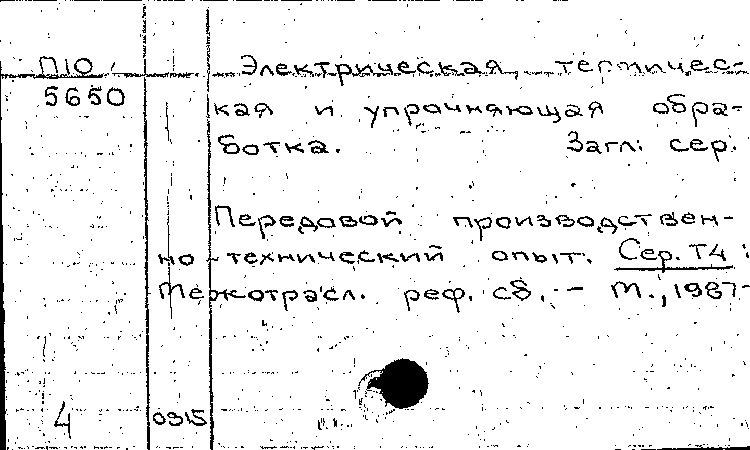 П10 Электрическая, термичес-
5650 кая и упрочняющая обра-
ботка. Загл. сер.
Передовой производствен-
но-технический опыт. Сер. Т4:
Межотрасл. реф. сб. - М., 1987-
4 0915